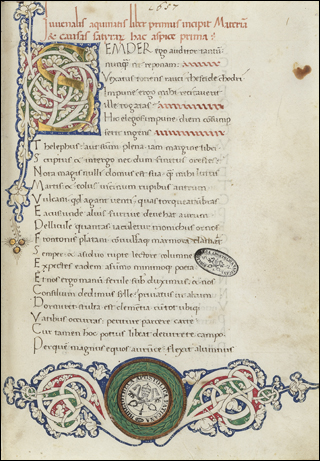 Iuvenalis aquinatis liber primus incipit Materiã
& causas satyrar hac aspice prima:
SEMPER ego auditor tantũ
nunquã ne reponam
Vexatus totiens rauci theseide chodri
Impune ergo mihi recitaverit
ille togatas
Hic elegos impune diem cõsump
serit ingens
Thelephus: aut summi plena iam margine libri
Scriptus & in tergo nec dum finitus orestes:
Nota magis nulli domus est sua quã mihi lucus
Martis & eoliis vicinum rupibus antrum
Vulcani: qd agant venti: quas torqueat umbras
Eacus: unde alius furtive devehat aurum
Pellicule quantas iaculetur monichus ornos
Frontonis platani convulsaq marmora clamant
Semper & assiduo rupte lectore columne
Expectes eadem a summo minimoq poeta
Et nos ergo manum ferule subduximus: & nos
Consilium dedimus sylle: privatus ut altum
Dormiret stulta est clementia cũ tot ubiq
Vatibus occurras: periture parcere carte
Cur tamen hoc potius libeat decurrere campo
Per quẽ magnus equos aurunce flexit alumnus